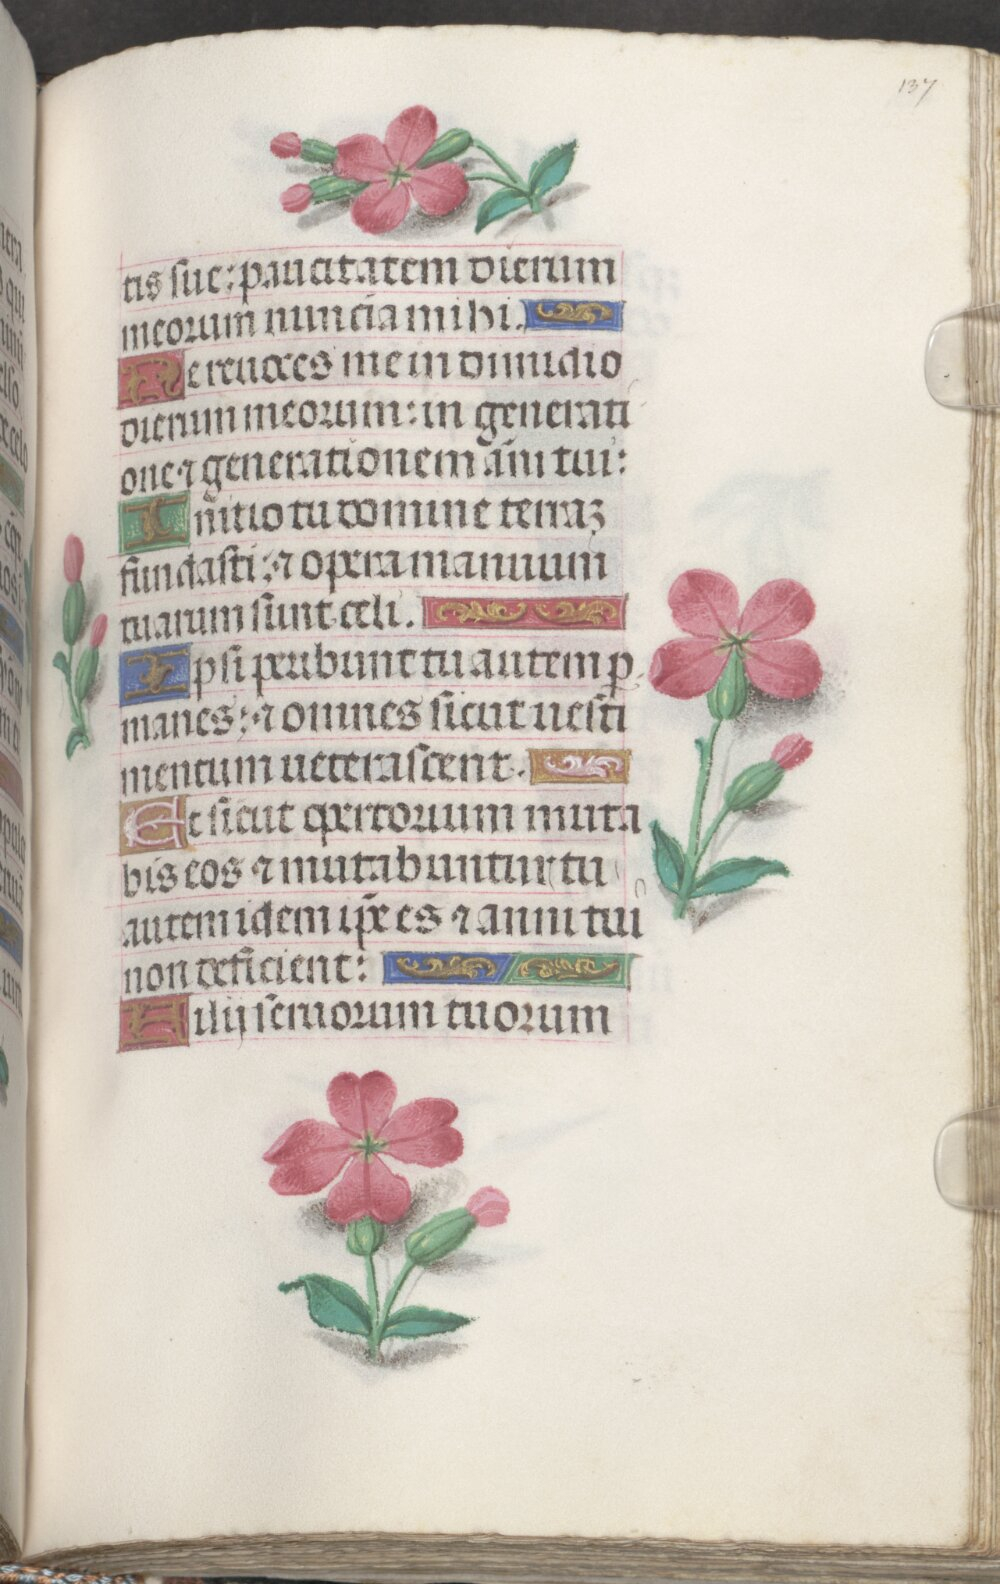 137
tis sue: paucitatem dierum
meorum nuncia mihi.
Ne reuoces me in dimidio
dierum meorum: in generati
one ⁊ generationem ãni tui:
Inĩtio tu domine terraꝫ
fundasti: ⁊ opera manuum
tuarum sunt celi.
Ipsi peribunt tu autem p̱
manes: ⁊ omnes sicut uesti
mentum ueterascent.
Et sicut opertorium muta
bis eos ⁊ mutabuntur tu
autem idem ip̃e es ⁊ anni tui
non deficient:
Filij seruorum tuorum